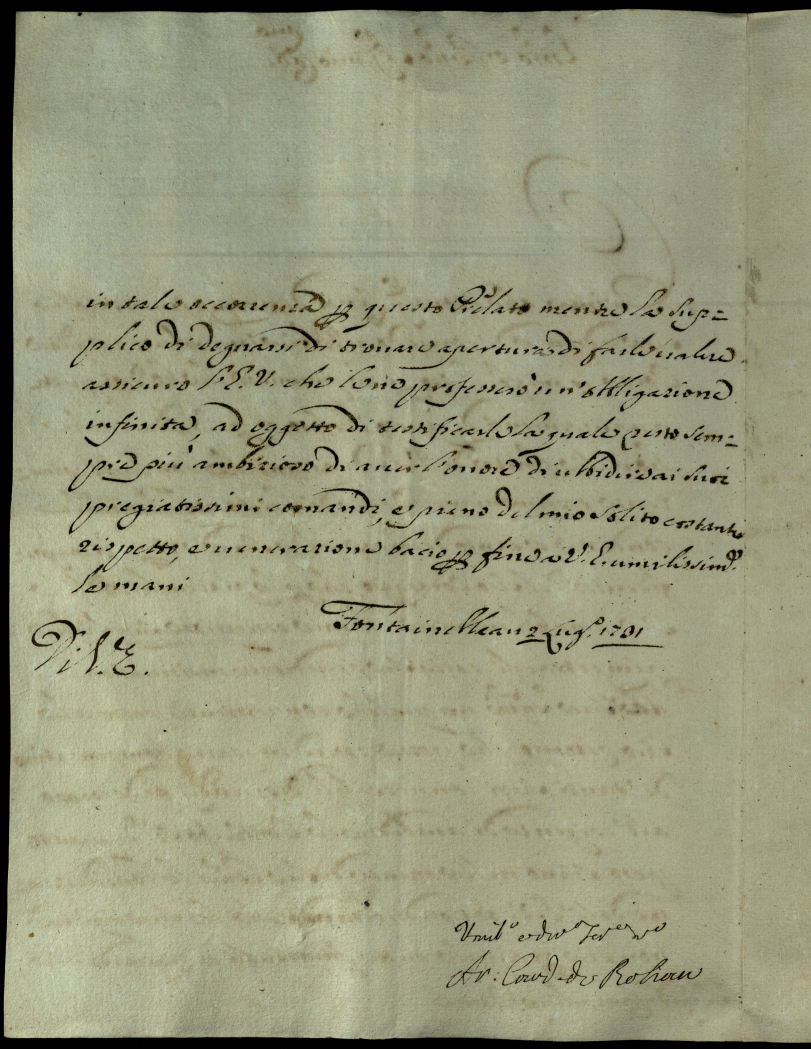 in tale occorrenza ꝑ questo Prelato mentre la sup=
plico di degnarsi di trovare apertura di farle valere
assicuro l'E. V. che le ne professerò un'obbligazione
infinita, ad oggetto di testificarle la quale resto sem=
pre più ambizioso di aver l'onore di ubbidire ai suoi
pregiatissimi comandi, e pieno del mio solito costante
rispetto, e venerazione bacio ꝑ fine a V. E. umilissimte
le mani
Fontainebleau 2 Lugl. 1781
Di V. E.
Umilo e divo Servre vo
Ar. Card. de Rohan